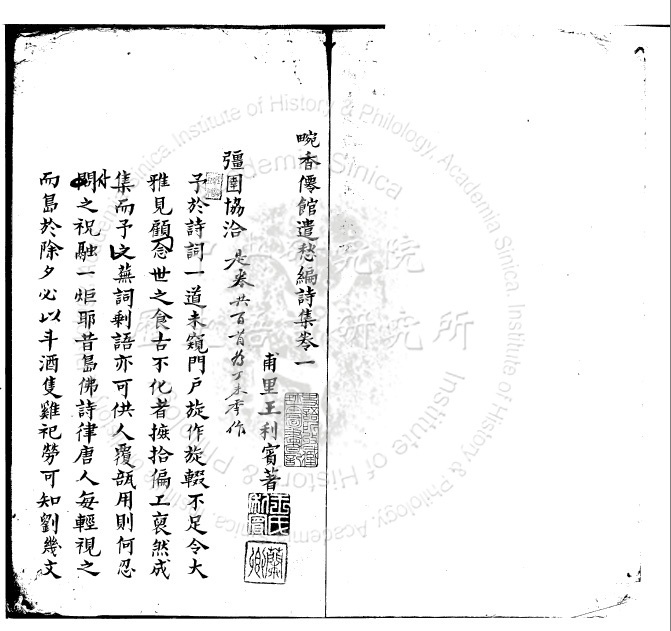 畹香僊館遣愁編詩集卷一
甫里王利賓著
彊圉協洽 是卷共百首於丁未季作
予於詩詞一道未窺門戶旋作旋輟不足令大
雅見顧念世之食古不化者摭拾偏工裒然成
集而予之蕪詞剩語亦可供人覆瓿用則何忍
之祝融一炬耶昔島佛詩律唐人每輕視之
而島於除夕必以斗酒隻雞祀勞可知劉幾文
中央研究院
歷史語言研究所
Institute of History & Philology, Academia Sinica